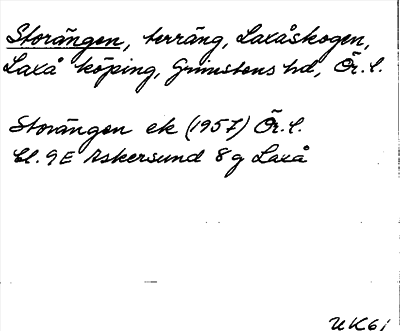 Storängen, terräng, Laxåskogen,
Laxå köping, Grimstens hd, Ör. l.
Storängen ek (1957) Ör. l.
Bl. 9E Askersund 8g Laxå
UK61